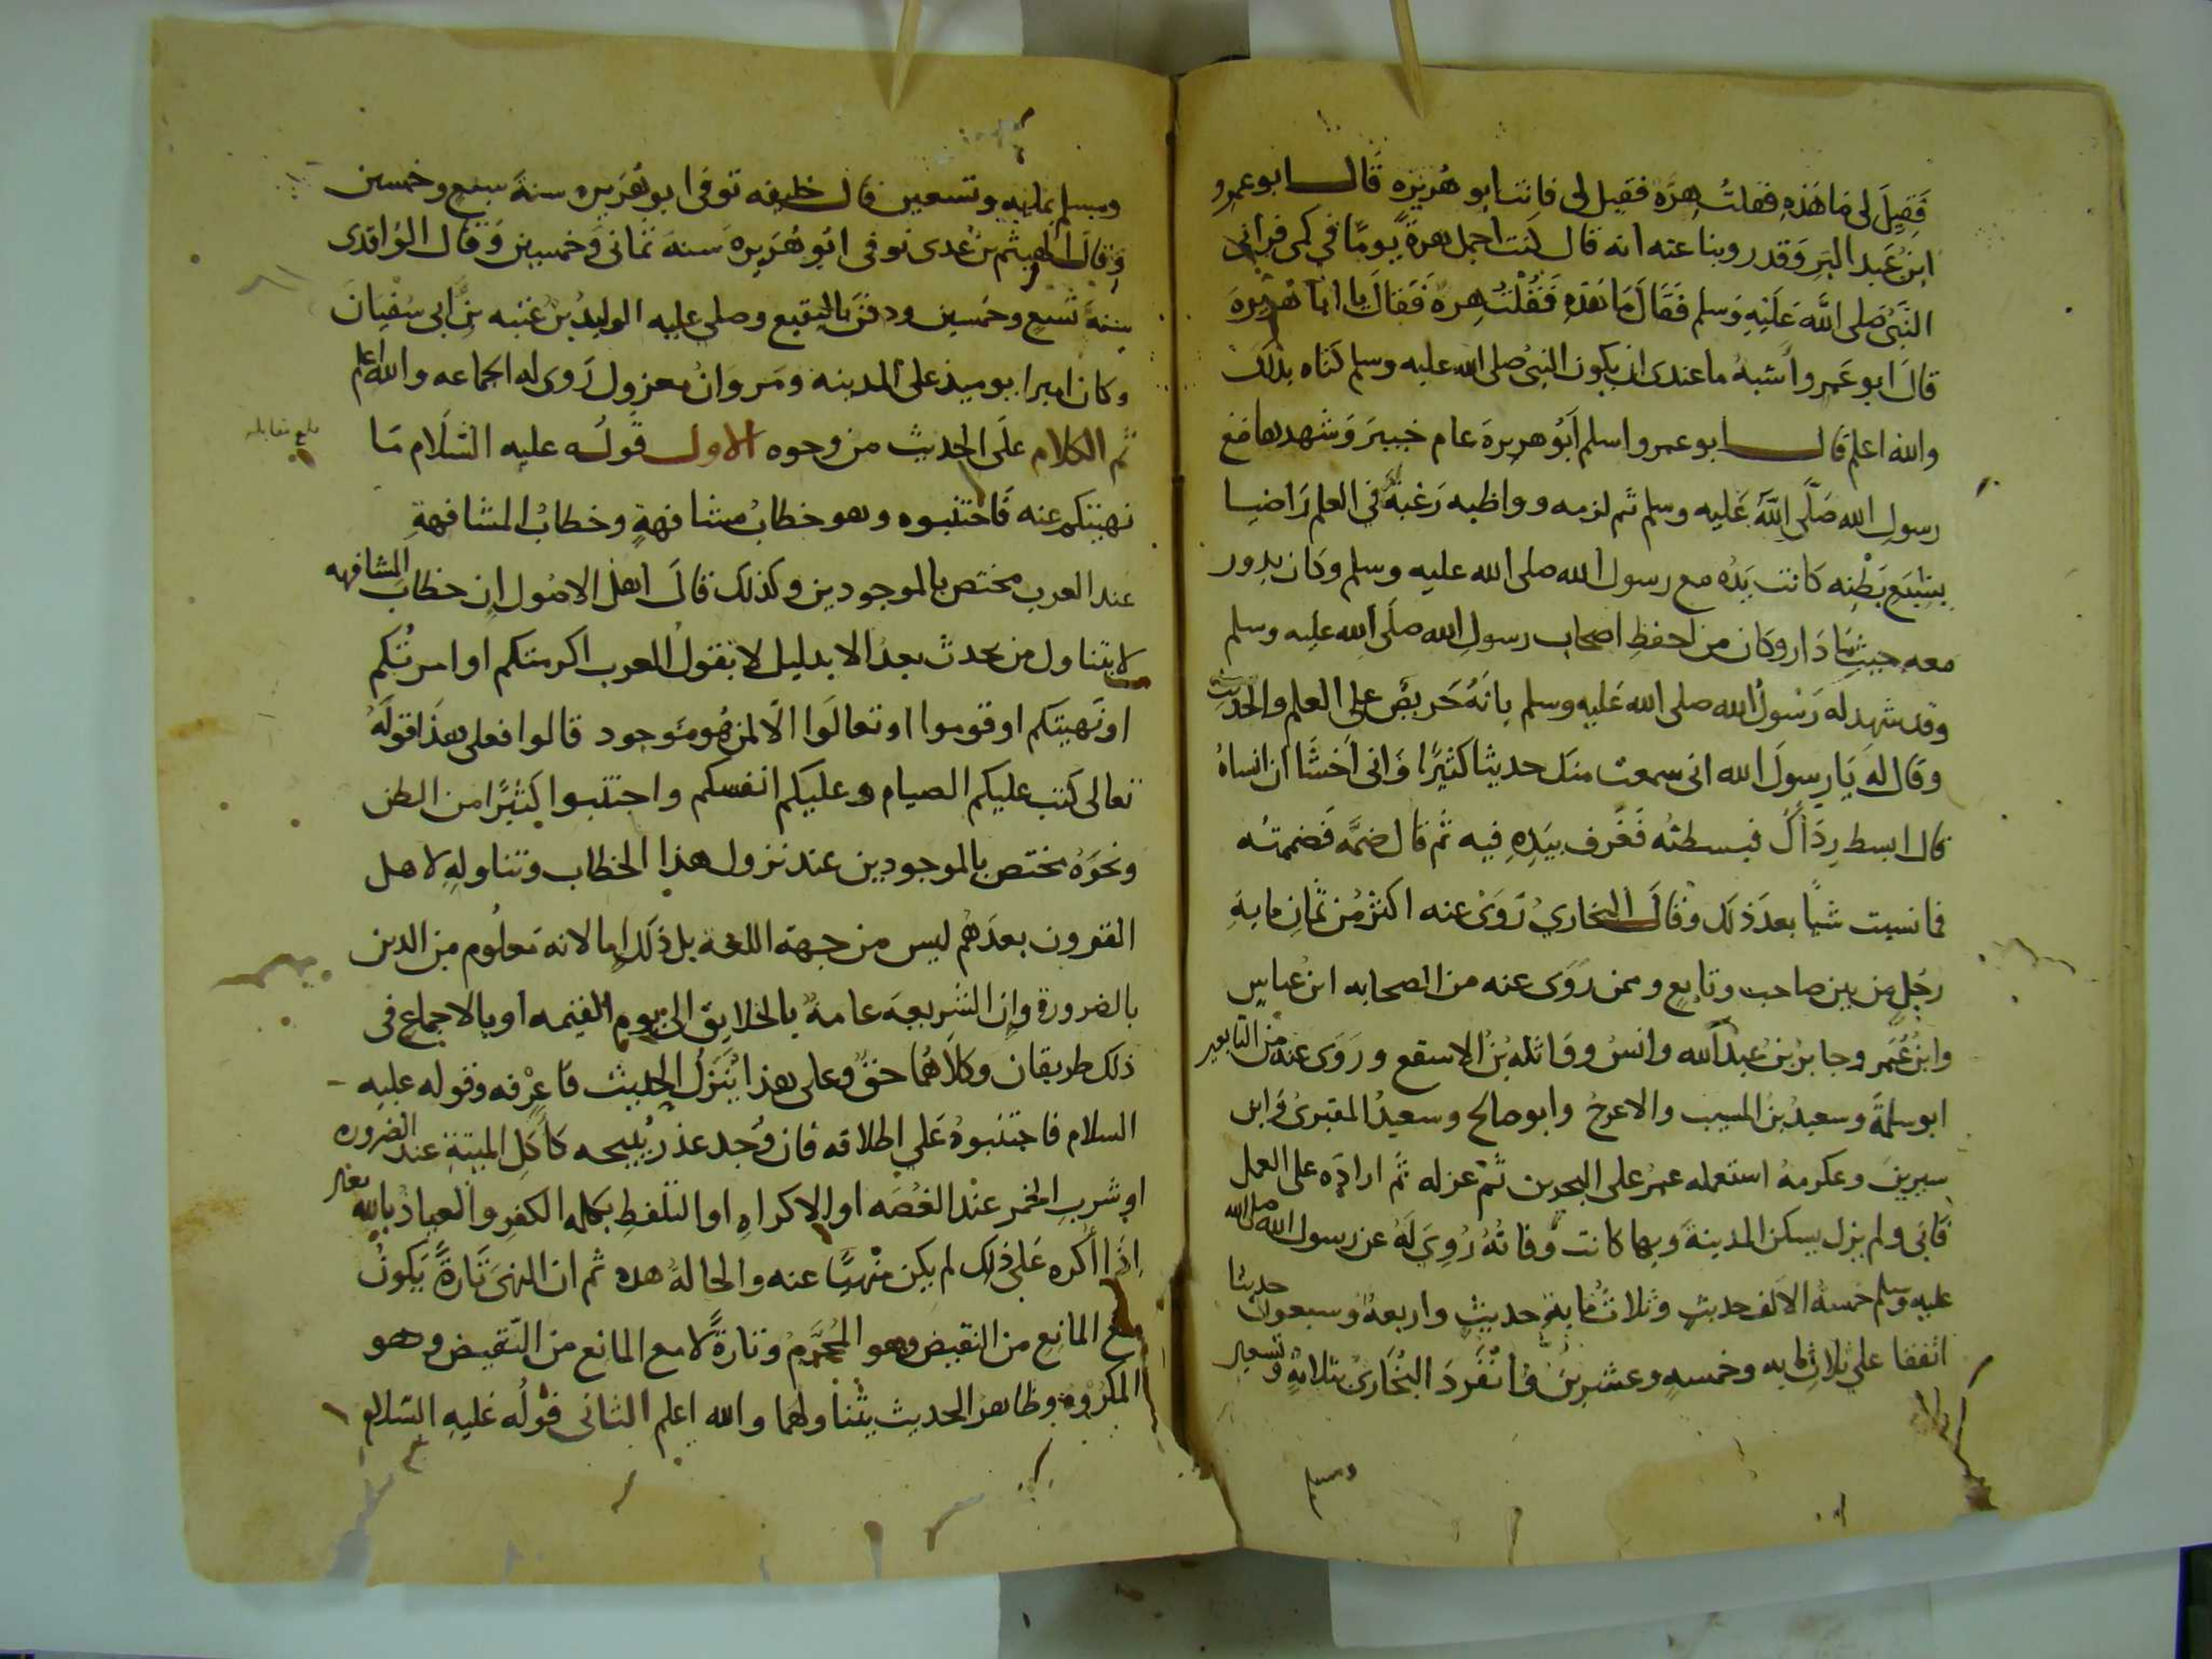 فَقِيلَ لى مَا هَذِهِ فقلتُ هِرَّه فقيل لى فانت ابو هُريَره قَال ابو عمرو
ابنُ عَبد البَر وَقد روينا عنه انه قال كنت احمل هرةً يومًا في كمى فرآنى
النَبىُّ صَلى اللَّه عَلَيْهِ وَسلم فَقَالَ مَا هَذِهِ فَقُلْتُ هِرة فَقالَ يا ابا هُرَيرهَ
قالَ ابو عَمرو أشبهُ ما عندى ان يكون النبىُ صلى الله عليه وسلم كَناه بذَلك
والله اعلم قال ابو عمرو اسلم أبُو هريرةَ عام خيبرَ وَشهدها مَع
رسولِ الله صَلَّى اللَّهُ عَليه وسلم ثم لزمه وواظبه رَغبَةً في العلم رَاضيا
بِشِبَعِ بَطْنِه كَانت يَدُه مع رسول الله صلى الله عليه وسلم وكان يدور
معه حيثُ مَا دَار وَكان من احفظِ اصحاب رسولِ الله صلَى الله عليه وسلم
وقد شهد له رَسُولُ الله صلى الله عَليه وسلم بانَهُ حَريصٌ على العلم والحديث
وقال لهَ يَا رسولَ الله انى سمعت منك حديثا كثيرًا وَانى أخشَا ان انساهُ
قال ابسط رِدَاكَ فبسطتُه فَغَرف بيَدِهِ فيه ثم قال ضمَّه فَضممتُه
فما نسيت شيًا بعدَ ذلك وقالَ البخاريُ رَوَى عنه اكثرُ مِن ثمانِ مايةِ
رَجُلٍ من بين صاحب وتابعٍ وممن رَوَى عنه من الصحابه ابن عباسٍ
وابنُ عُمَر وجابرُ بنُ عَبدِ الله وانسُ وواثله بنُ الاسقع ورَوَى عنه من التابعين
ابو سلمةَ وسعيدُ بنُ المسيب والاعرجُ وابو صالح وسعيدُ المقبرىُ وَابن
سيرينَ وعكرمهُ استعمله عمرُ على البحرين ثم عزله ثم ارادَه على العمل
فَابَى ولم يزل يسكن المدينةَ وبها كانت وَفاتهُ رُوِىَ لَهُ عن رسول الله صلى الله
عليه وسلم خمسة الاَلف حديثٍ وثلاثُ مايةِ حديثٍ واربعهٌ وسبعون حديثا
اتفقا على ثلاث مايه وخمسهٍ وعشرينَ وَانْفَردَ البُخَارىُ بثلاثةٍ وتسعين
ومسلم
وسلم بمايه وتسعين قال خليفه توفى ابو هُرَيره سنةَ سبعٍ وخمسين
وَقالَ الهيثم بنُ عدى توفى ابُو هُرَيرهَ سَنهَ ثمانى وَخمسين وَقال الوَاقدى
سنةَ تسعٍ وخمسين ودفنَ بالبقيع وصلى عليه الوليدُ بنُ عتبه بنِ ابى سُفيانَ
وكان اميرا يوميذ على المدينه ومَروَانُ معزول رَوى له الجماعه والله اعلم
ثم الكلام علَى الحديث من وجوه الاول قولُه عليه السَّلام مَا
بلغ مقابله
نهيتكم عنه فَاجتنبوه وهو خطابُ مشافهةٍ وخطابُ المشافهةِ
عند العرب مختص بالموجودين وكذلك قالَ اهلُ الاصُول ان خطابَ المشافهه
لا يتناول من يحدث بعدُ الا بدليل لا تقولُ العرب اكرمتكم او امرتُكم
او نَهيتكم او قوموا او تعالَوا الّا لمن هُو مَوجود قالوا فعلى هذَا قولُه
تعالى كتب عليكم الصيام وعليكم انفسكم واجتنبوا كثيرًا من الظن
ونحوَهُ مختص بالموجودين عند نزول هذا الخطاب وتناولِه لاهل
القرون بعدَهُم ليس من جهة اللغة بل ذَلك اما لانه مَعلُوم من الدين
بالضرورة وان الشريعهَ عامةٌ بالخلايق الى يوم القيمه أو بالاجماع فى
ذلك طريقان وكلاَهُما حَقٌ وعلى هذا يَتَنزلُ الحديث فَاعِرْفه وقوله عليه
السلام فاجتنبوهُ عَلى اطلاقه فان وُجد عذرٌ يُبيحه كَأكلِ الميتةِ عند الضروره
او شربِ الخمر عنْد الغُصَه او الاكراهِ او التلفظِ بكلمه الكفرِ والعياذُ بالله تعالى
اِذَا أُكره عَلى ذلك لم يكن منْهيًا عنه والحالهُ هذه ثم ان النهىَ تَارةً يَكونُ
مع المانِع من النقيض وهو المُحَرَّمُ وتارةً لا مع المانع من النَّقيض وهو
المكرُوهُ وظاهرُ الحديث يتناولهما والله اعلم الثانى قولُه عَليهِ السَّلام